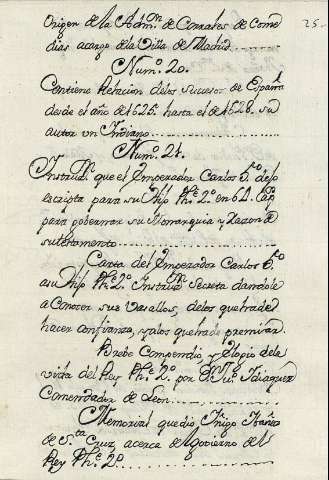 Origen de la Adm.ⁿ de Corrales de Come
dias acargo de la Villa de Madrid
25
Num.º 20.
Contiene Relacion delos Sucesos de España
desde el año de 1625. hasta el de 1628. su
autor un Indiano
Num.º 21.
Instruc.ⁿ que el Imperador Carlos 5.º dejo
escripta para su Hijo Ph.e 2.º en 61. Cap.s
para gobernar su Monarquia y Razon de
su testamento
Carta del Imperador Carlos 5.º
a su Hijo Ph.e 2.º Instruc.ⁿ Secreta dandole
a Conocer sus Vasallos, delos que ha de
hacer confianza, y alos que ha de premiar.
Brebe Compendio, y Elogio dela
vida del Rey Ph.e 2.º por D. Ju.º Idiaquez
Comendador de Leon
Memorial que dio Iñigo Ibañez
de S.ta Cruz, acerca del govierno del
Rey Ph.e 2.º